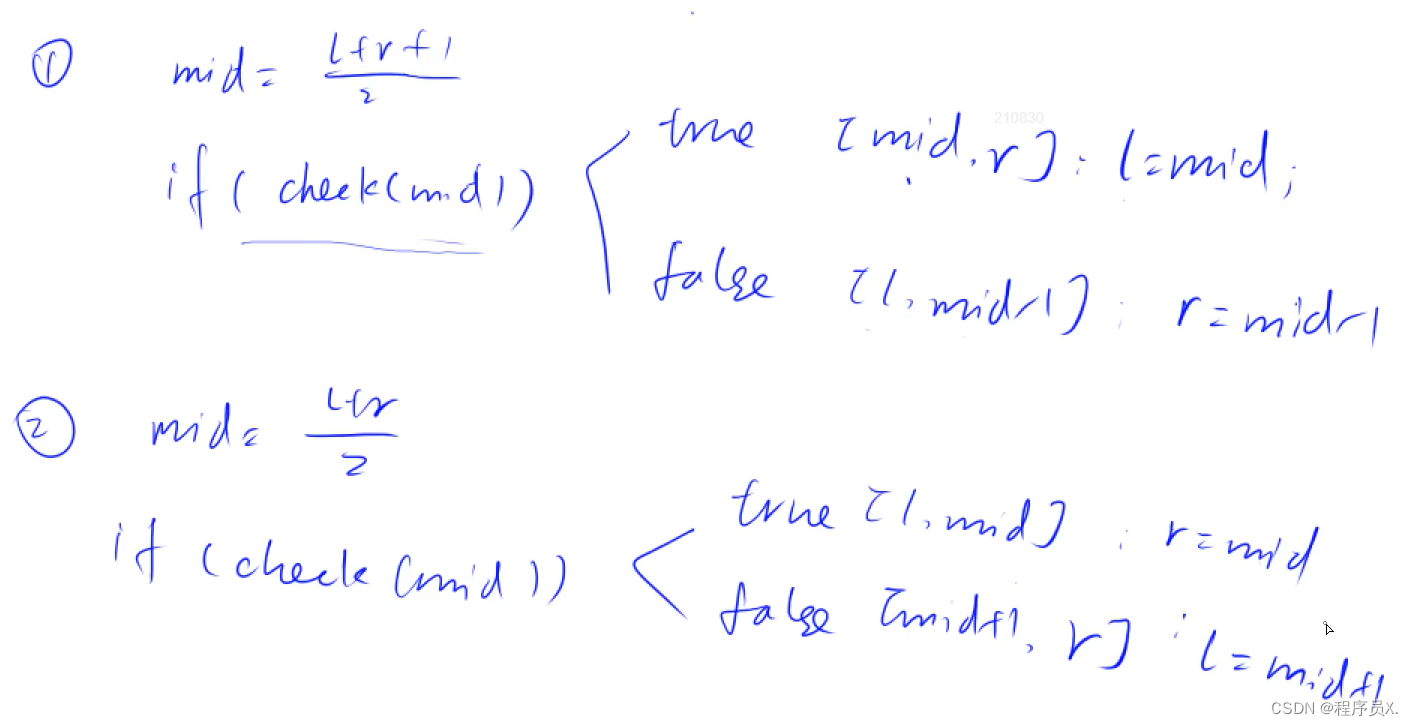 ① mid = (l+r+1)/2
210830
true [mid, r] : l=mid;
if ( check(mid))
false [l, mid-1] : r=mid-1
② mid = (l+r)/2
true [l, mid] : r=mid
if (check (mid))
false [mid+1, r] : l=mid+1
CSDN @程序员X.